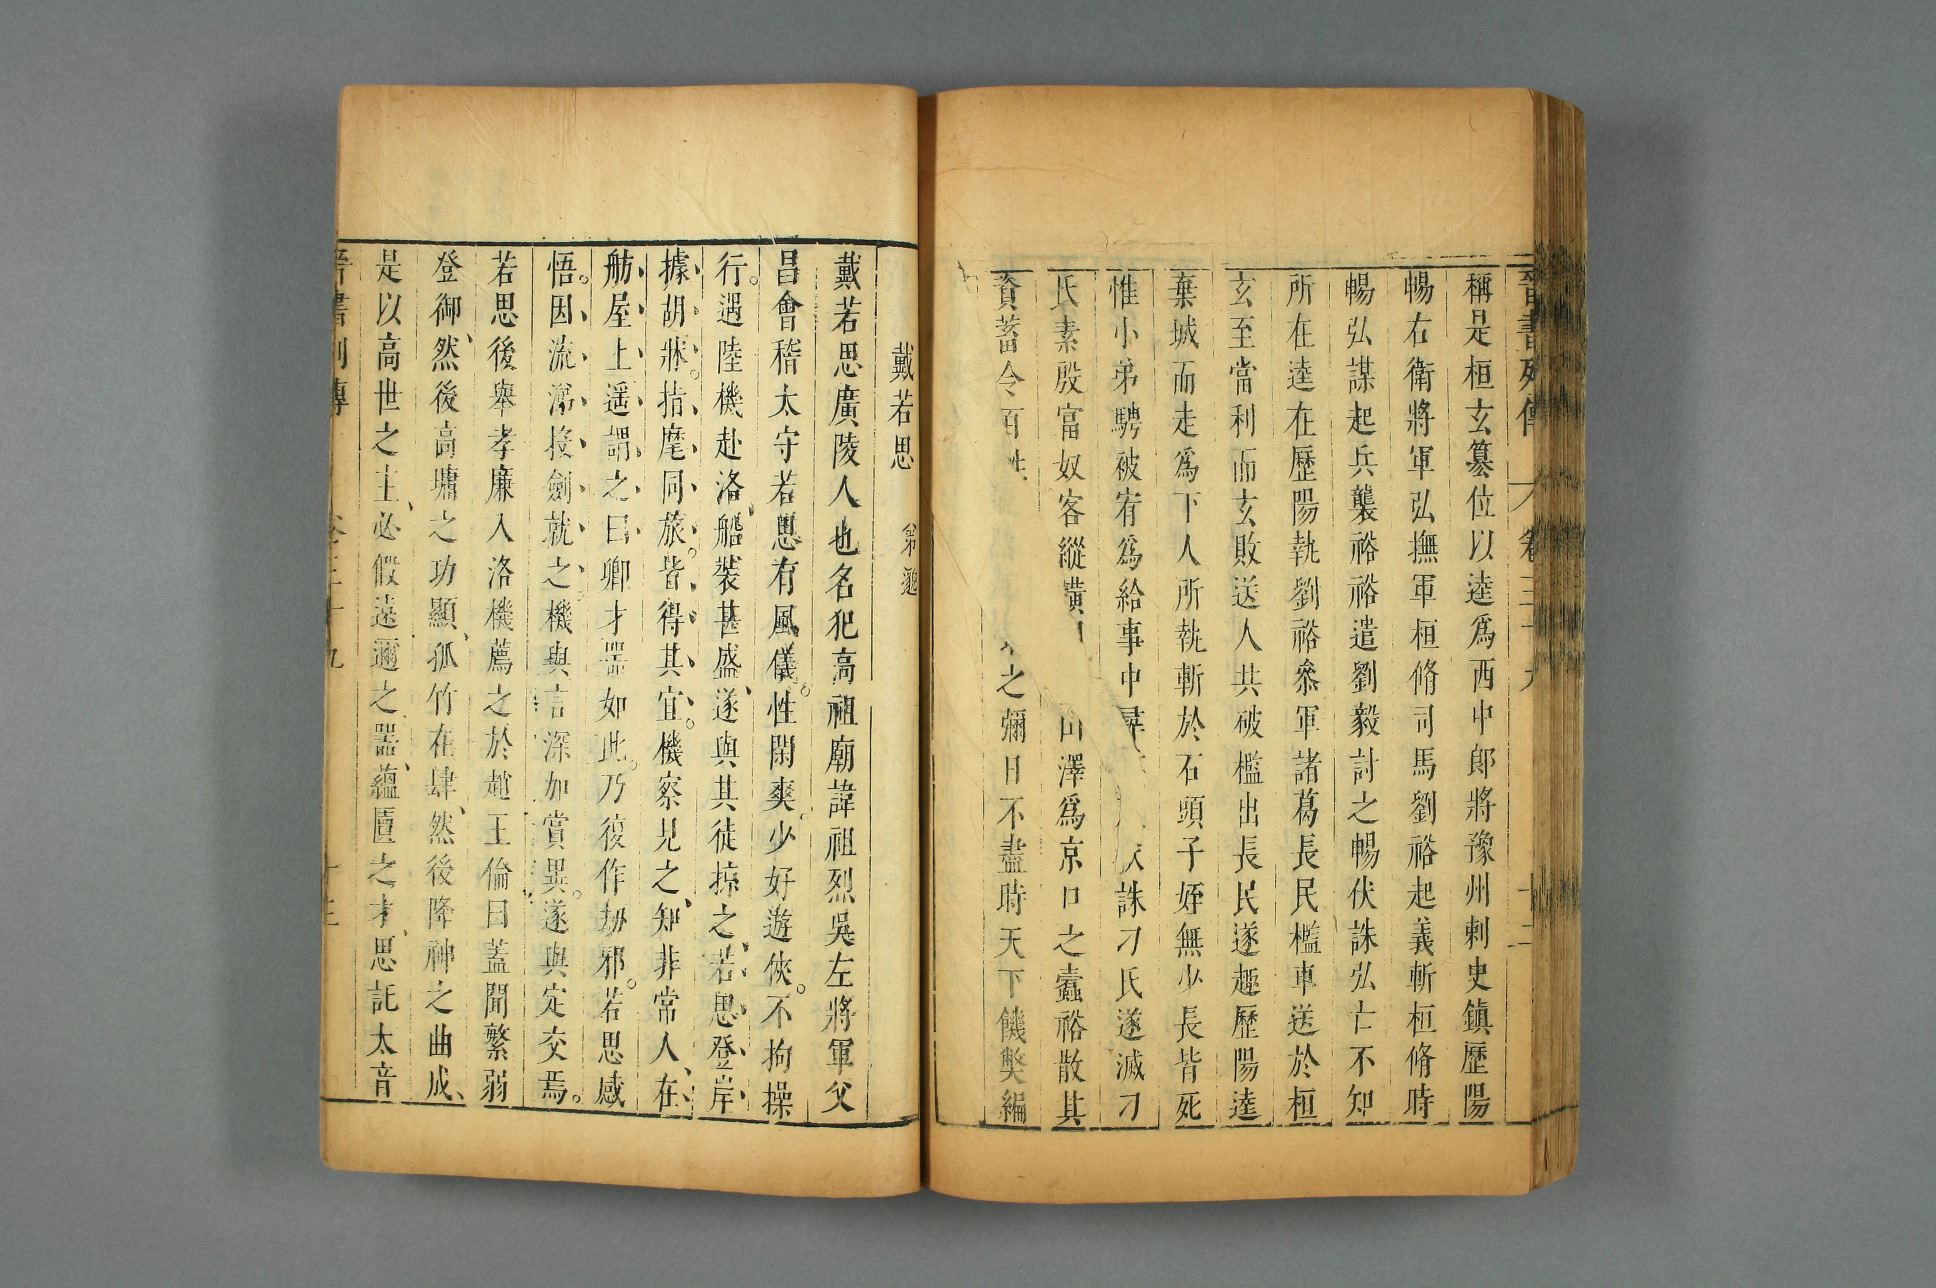 晉書列傳 卷三十九 十二
稱是桓玄簒位以逵爲西中郎將豫州刺史鎮歷陽
暢右衛將軍弘撫軍桓脩司馬劉裕起義斬桓脩時
暢弘謀起兵襲裕裕遣劉毅討之暢伏誅弘亡不知
所在逵在歷陽執劉裕叅軍諸葛長民檻車送於桓
玄至當利而玄敗送人共破檻出長民遂趣歷陽逵
棄城而走爲下人所執斬於石頭子姪無少長皆死
惟小弟騁被宥爲給事中尋 誅刁氏遂滅刁
氏素殷富奴客縱橫 山澤爲京口之蠹裕散其
資蓄令百姓 之彌日不盡時天下饑獘編
戴若思 弟邈
戴若思廣陵人也名犯高祖廟諱祖烈吳左將軍父
昌會稽太守若思有風儀性閑爽少好遊俠不拘操
行遇陸機赴洛船裝甚盛遂與其徒掠之若思登岸
據胡牀指麾同旅皆得其宜機察見之知非常人在
舫屋上遥謂之曰卿才噐如此乃復作劫邪若思感
悟因流涕投劍就之機與言深加賞異遂與定交焉
若思後舉孝廉入洛機薦之於趙王倫曰蓋聞繁弱
登御然後高墉之功顯孤竹在肆然後降神之曲成
是以高世之主必假遠邇之噐蘊匱之才思託太音
晉書列傳 卷三十九 十三